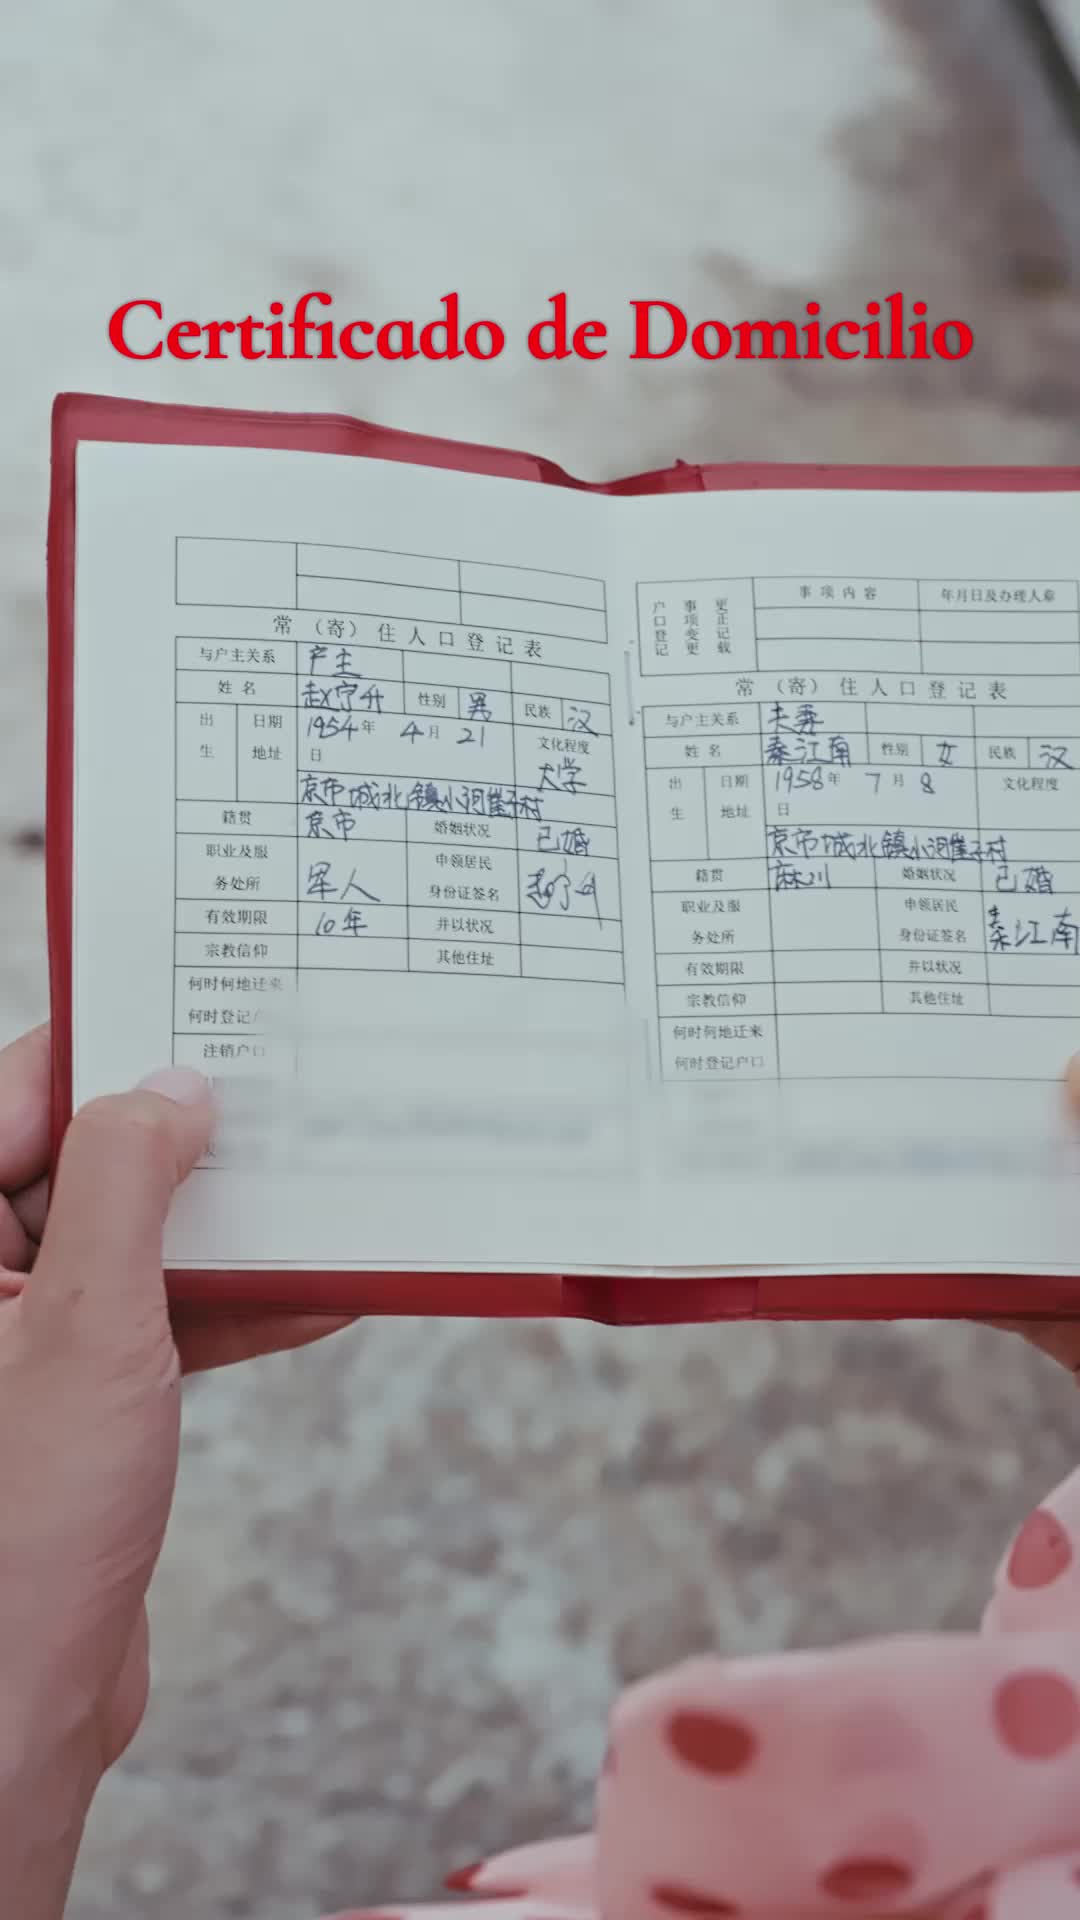 Certificado de Domicilio
常（寄）住人口登记表
与户主关系 户主
姓名 赵宁升 性别 男 民族 汉
出生 日期 1954年 4月 21日 文化程度 大学
地址 京市城北镇小河崔子村
籍贯 京市 婚姻状况 已婚
职业及服务处所 军人 申领居民身份证签名
有效期限 10年 并以状况
宗教信仰 其他住址
何时何地迁来
何时登记户
注销户口
户口登记 事项变更 更正记载 事项内容 年月日及办理人章
常（寄）住人口登记表
与户主关系 夫妻
姓名 秦江南 性别 女 民族 汉
出生 日期 1958年 7月 8日 文化程度
地址 京市城北镇小河崔子村
籍贯 麻川 婚姻状况 已婚
职业及服务处所 申领居民身份证签名 秦江南
有效期限 并以状况
宗教信仰 其他住址
何时何地迁来
何时登记户口